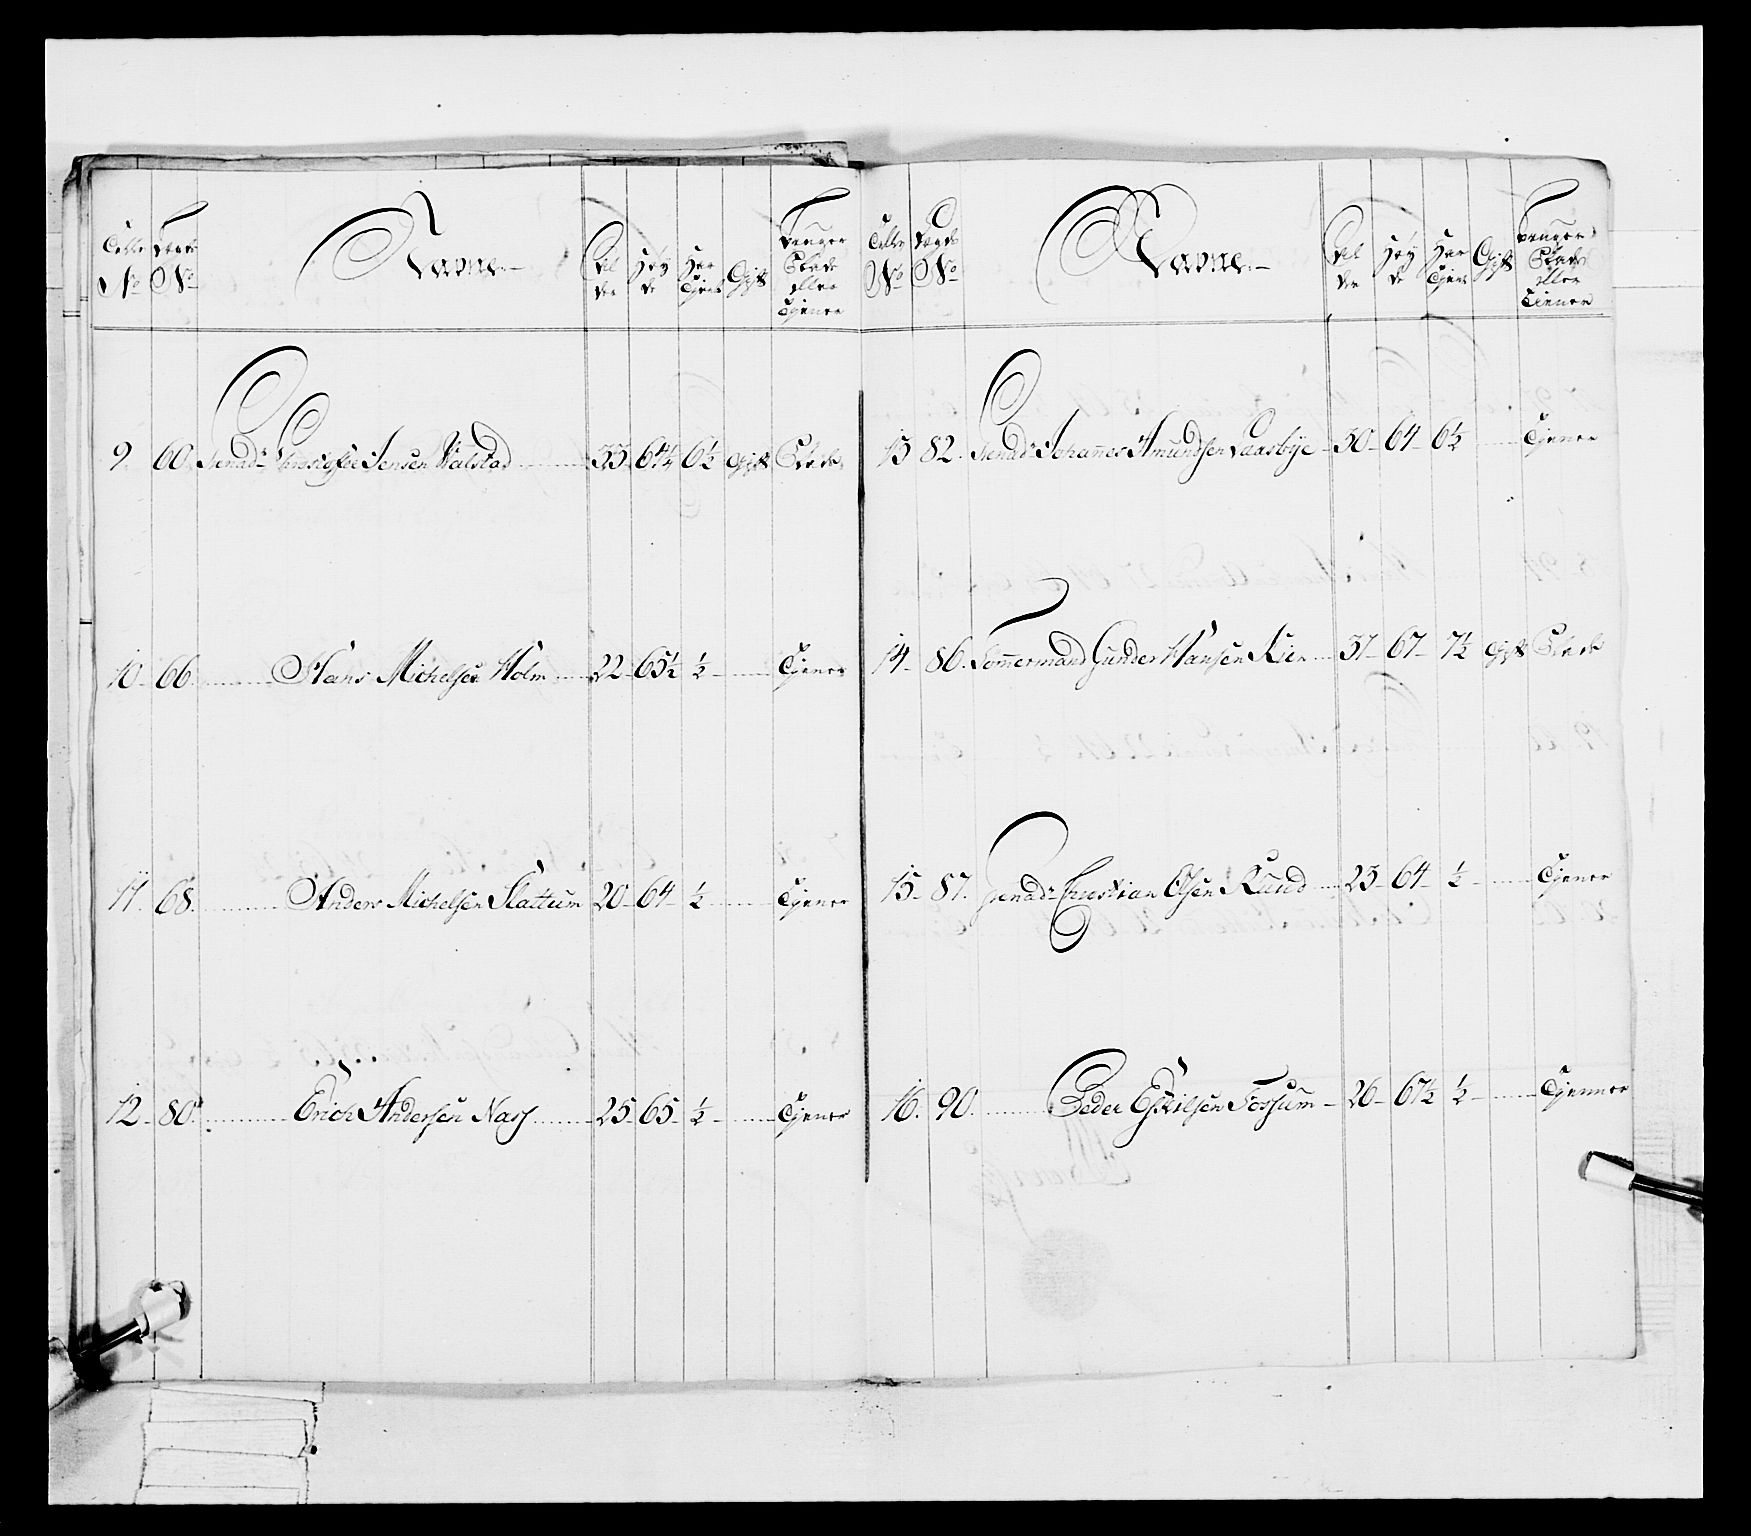 Tolle No Lægds No Navne Alder Høyde Har Tjent Gift Bruger Stæde eller Tjener
9. 60. Grenadr Christofer Jensen Walstad 33 64¼ 6½ Gift Stæde
10 66 Hans Michelsen Holm 22 65½ ½ Tjener
11. 68. Anders Michelsen Slattum 20 64 ½ Tjener
12 80 Erich Andersen Næss 25 65 ½ Tjener
Tolle No Lægds No Navne Alder Høyde Har Tjent Gift Bruger Stæde eller Tjener
13 82. Grenadr Johannes Amundsen Laasbye 30 64 6½ Tjener
14 86. Tømmermand Gunder Hansen Kier 31 67 7½ Gift Stæde
15 87. Grenadr Christian Olsen Ruud 23 64 ½ Tjener
16. 90. Peder Eskilsen Fossum 26 67½ ½ Tjenner